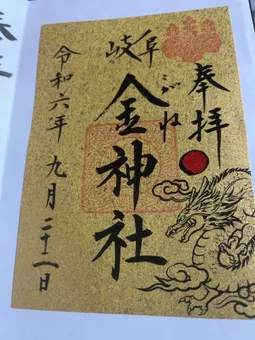 奉拝
岐阜
こがね
金神社
令和六年 九月 二十一日